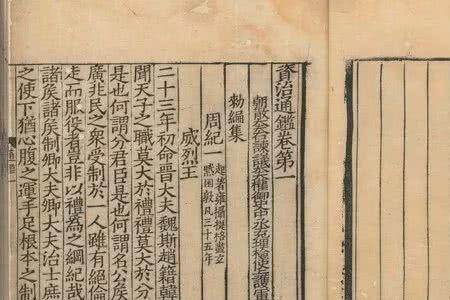 資治通鑑卷第一
朝散大夫右諫議大夫權御史中丞充理檢使上護軍
勑編集
周紀一 起著雍攝提格盡玄
黓困敦凡三十五年
威烈王
二十三年初命晉大夫魏斯趙籍韓
聞天子之職莫大於禮禮莫大於分
是也何謂分君臣是也何謂名公矦
廣兆民之衆受制於一人雖有絕倫
走而服役者豈非以禮為之綱紀哉
諸矦諸矦制卿大夫卿大夫治士庶
之使下猶心腹之運手足根本之制